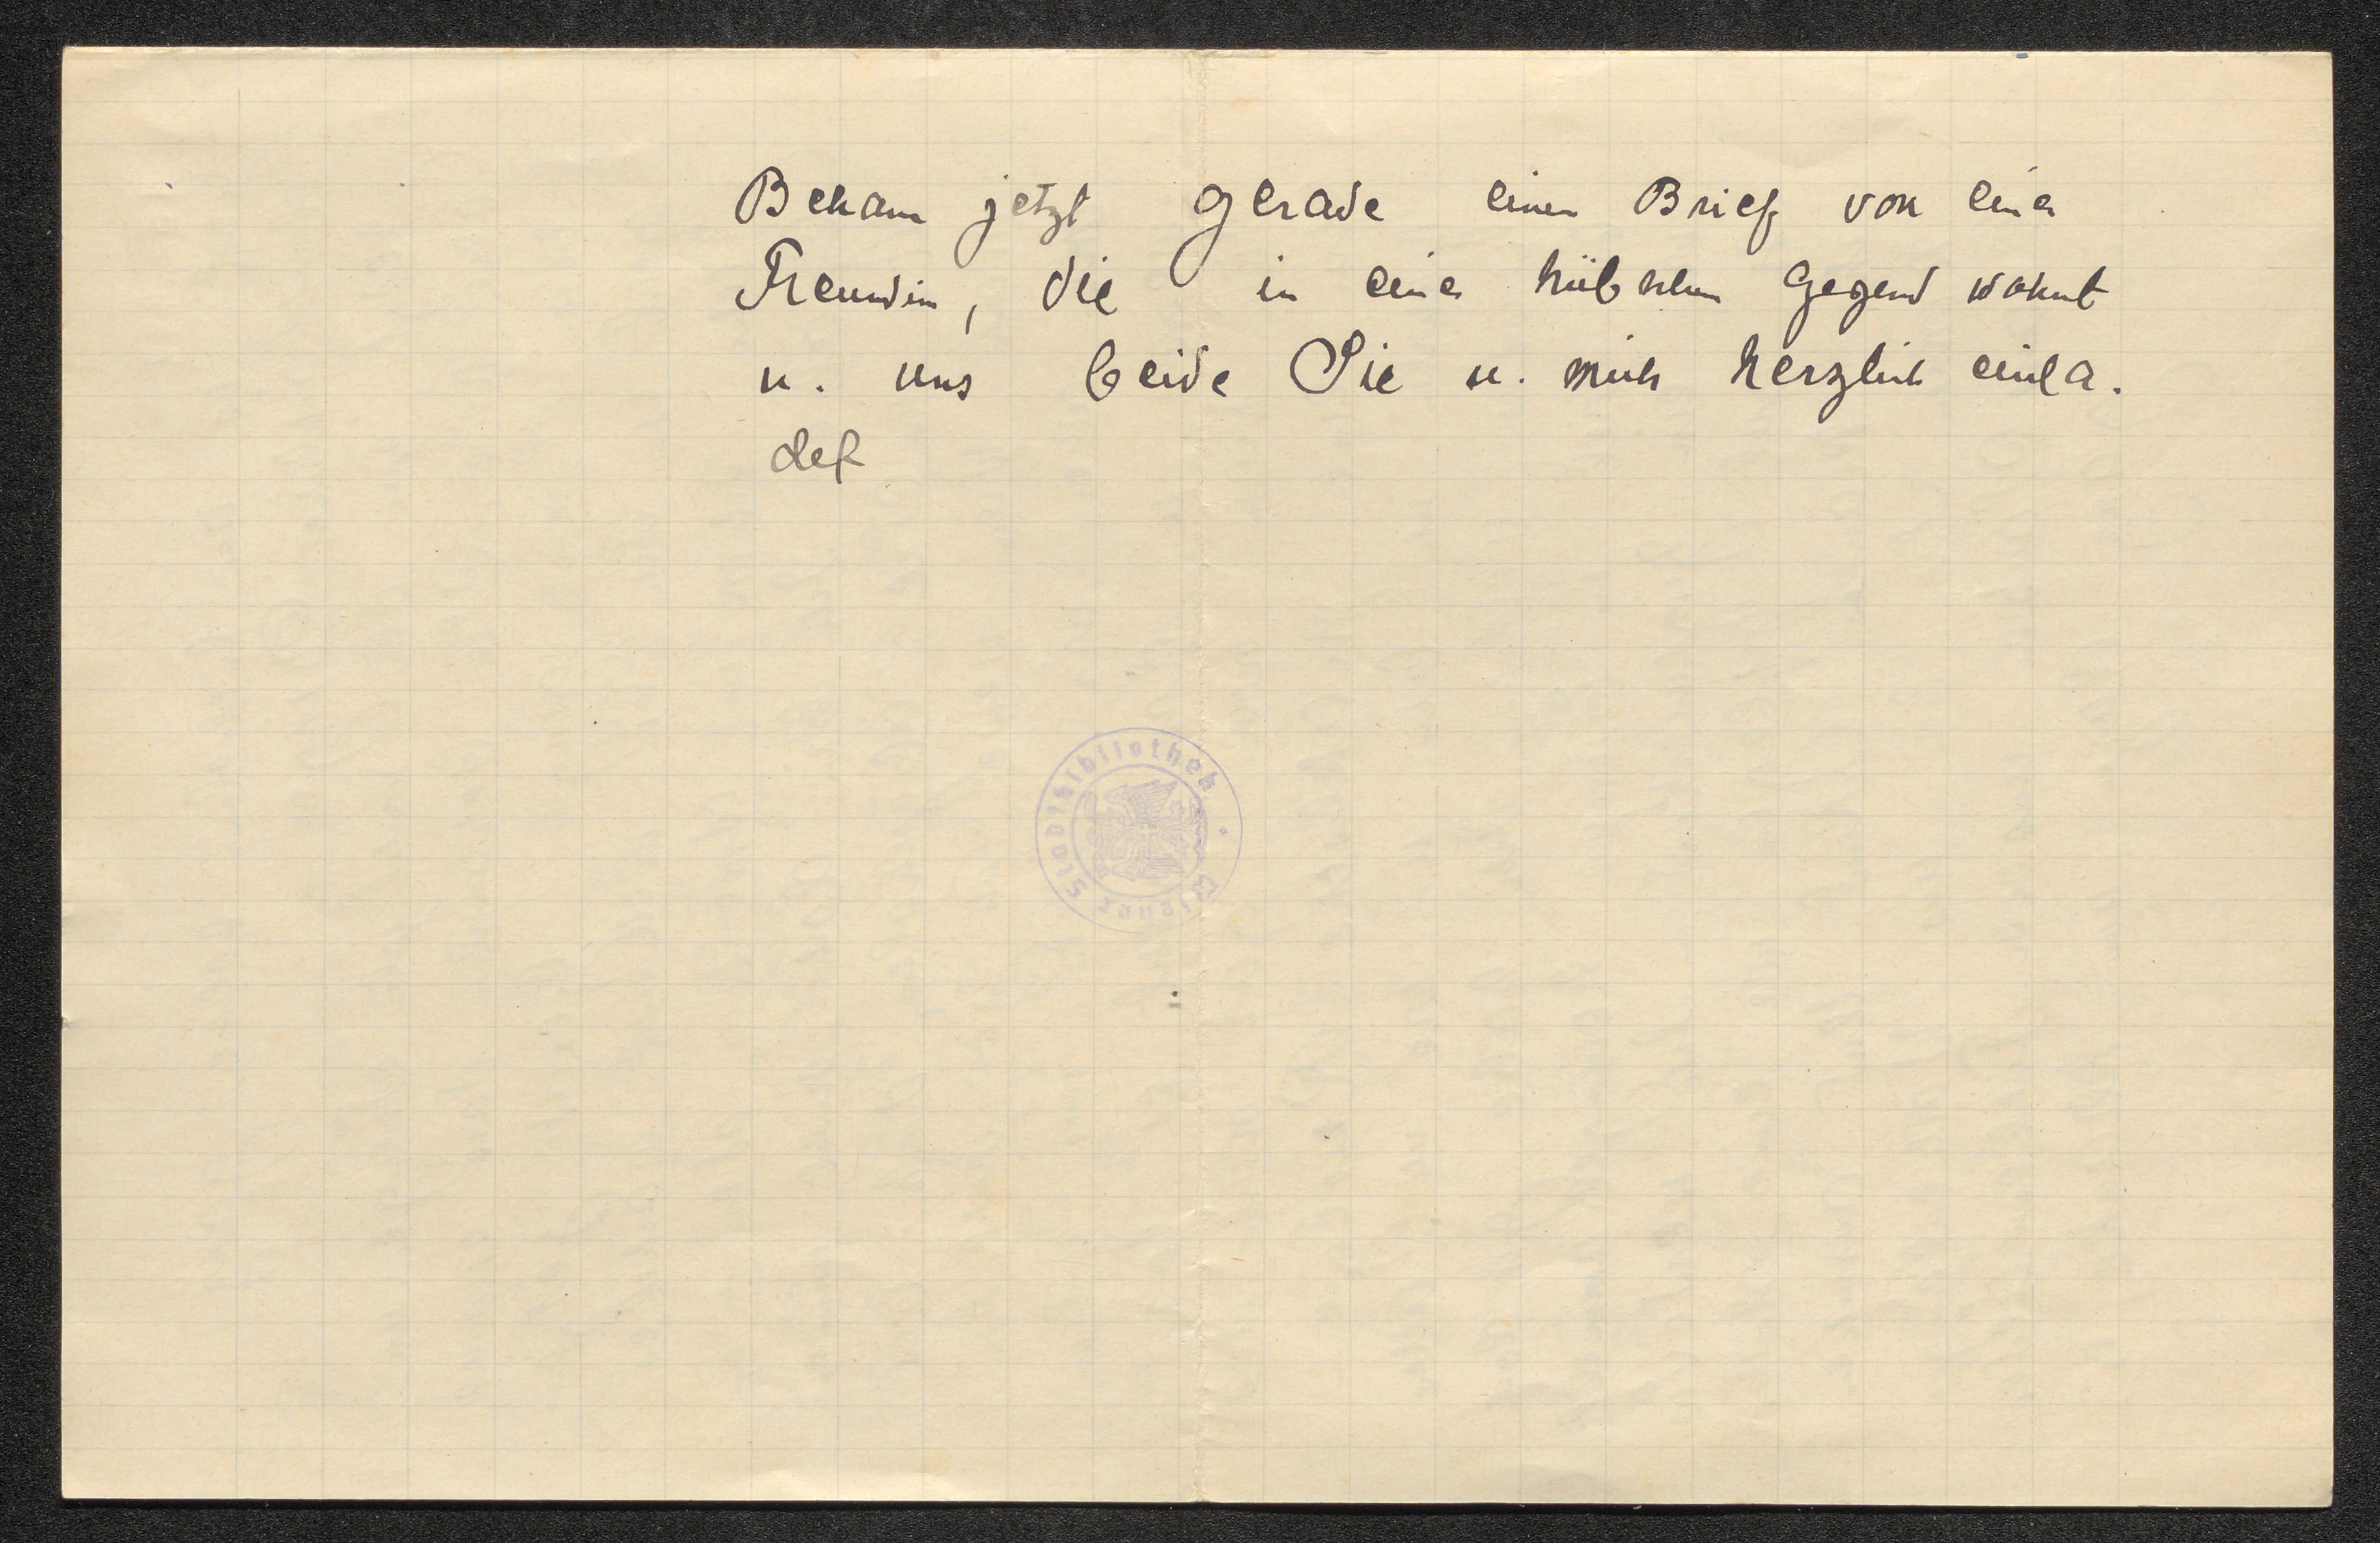 Bekam jetzt gerade einen Brief von einer
Freundin, die in einer hübschen Gegend wohnt
u. uns beide Sie u. mich herzlich einla-
det
Wiener Stadtbibliothek